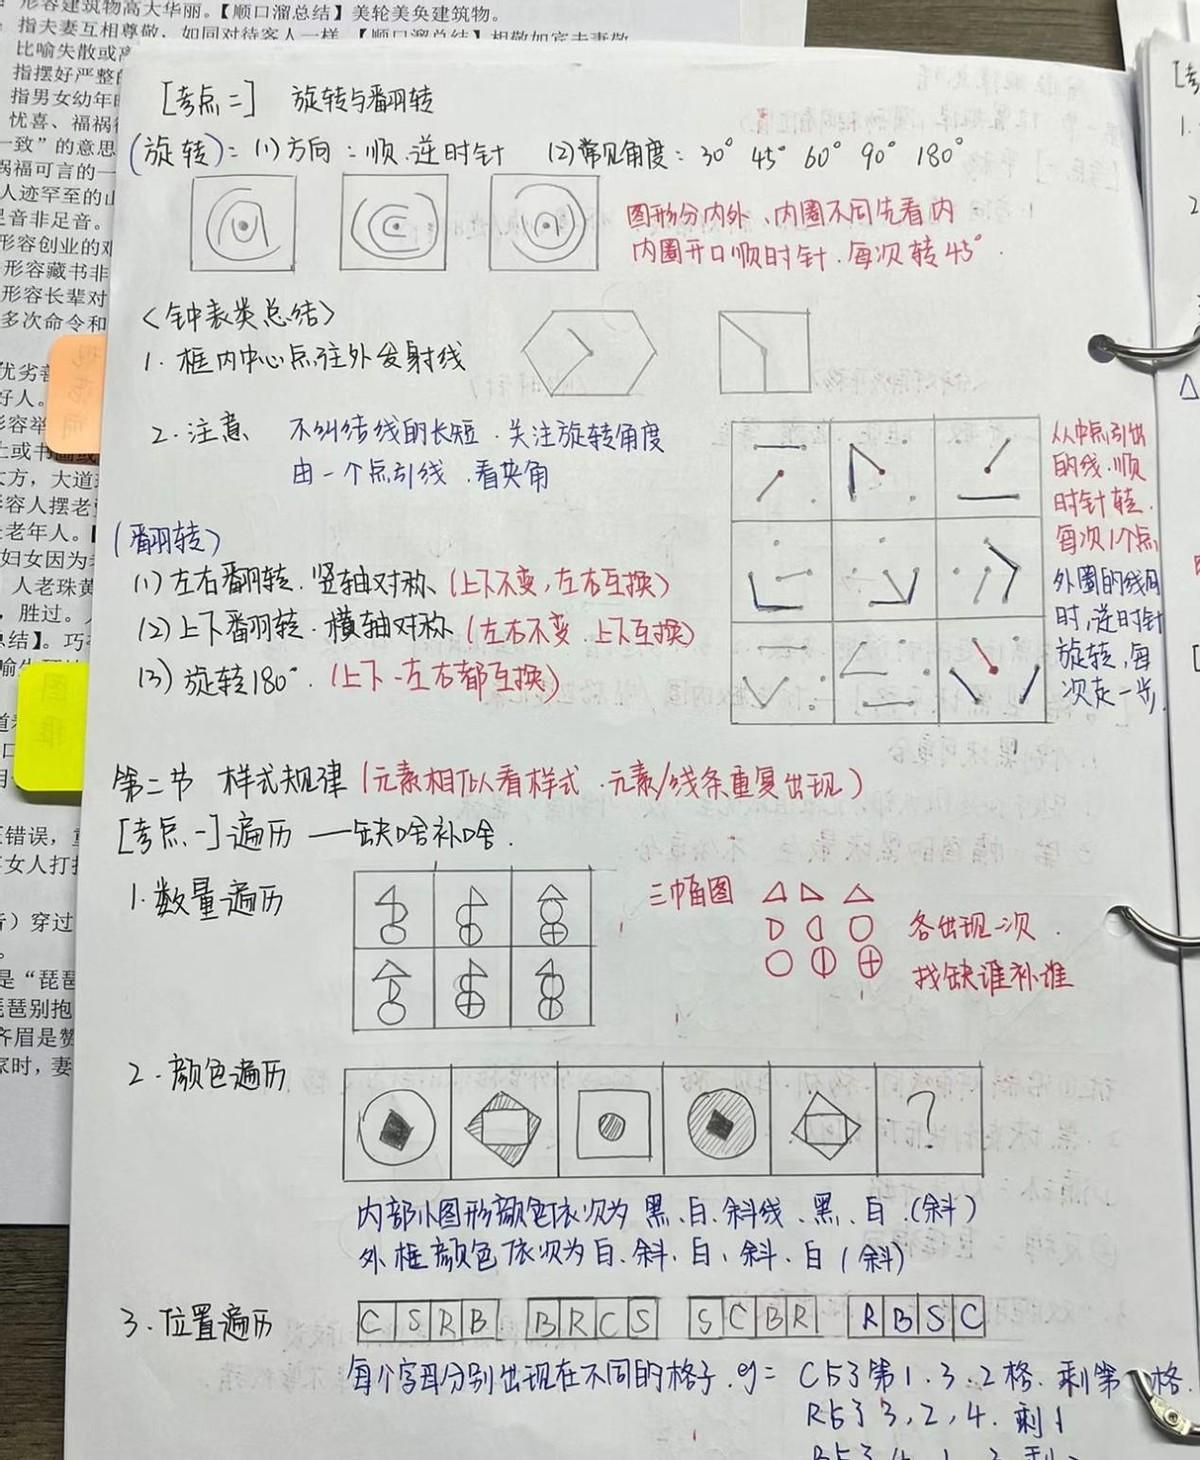 形容建筑物高大华丽。【顺口溜总结】美轮美奂建筑物。
指夫妻互相尊敬，如同对待客人一样。【顺口溜总结】相敬如宾夫妻敬
比喻失散或
指摆好严整
指男女幼年
忧喜、福祸
一致”的意思
祸福可言的一
人迹罕至的山
足音非足音。
形容创业的艰
形容藏书非
形容长辈对
多次命令和
[考点二] 旋转与翻转
(旋转): (1)方向: 顺.逆时针 (2)常见角度: 30° 45° 60° 90° 180°
图形分内外、内圈不同先看内
内圈开口顺时针.每次转45°.
<钟表类总结>
1. 框内中心点往外发射线
2. 注意 不纠结线的长短.关注旋转角度
由一个点引线.看夹角
从中点引出
的线.顺
时针转.
每次1个点
外圈的线同
时,逆时针
旋转,每
次走一步.
(翻转)
(1)左右翻转.竖轴对称(上下不变,左右互换)
(2)上下翻转.横轴对称(左右不变.上下互换)
(3)旋转180°.(上下、左右都互换)
第二节 样式规律(元素相似看样式.元素/线条重复出现)
[考点一]遍历 —缺啥补啥.
1.数量遍历
三幅图
各出现一次.
找缺谁补谁
2.颜色遍历
?
内部小图形颜色依次为 黑、白、斜线、黑、白.(斜)
外框颜色依次为白、斜、白、斜、白(斜)
3.位置遍历
C S R B B R C S S C B R R B S C
每个字母分别出现在不同的格子.eg= C占了第1.3.2格.剩第
格.
R占了3,2,4.剩1